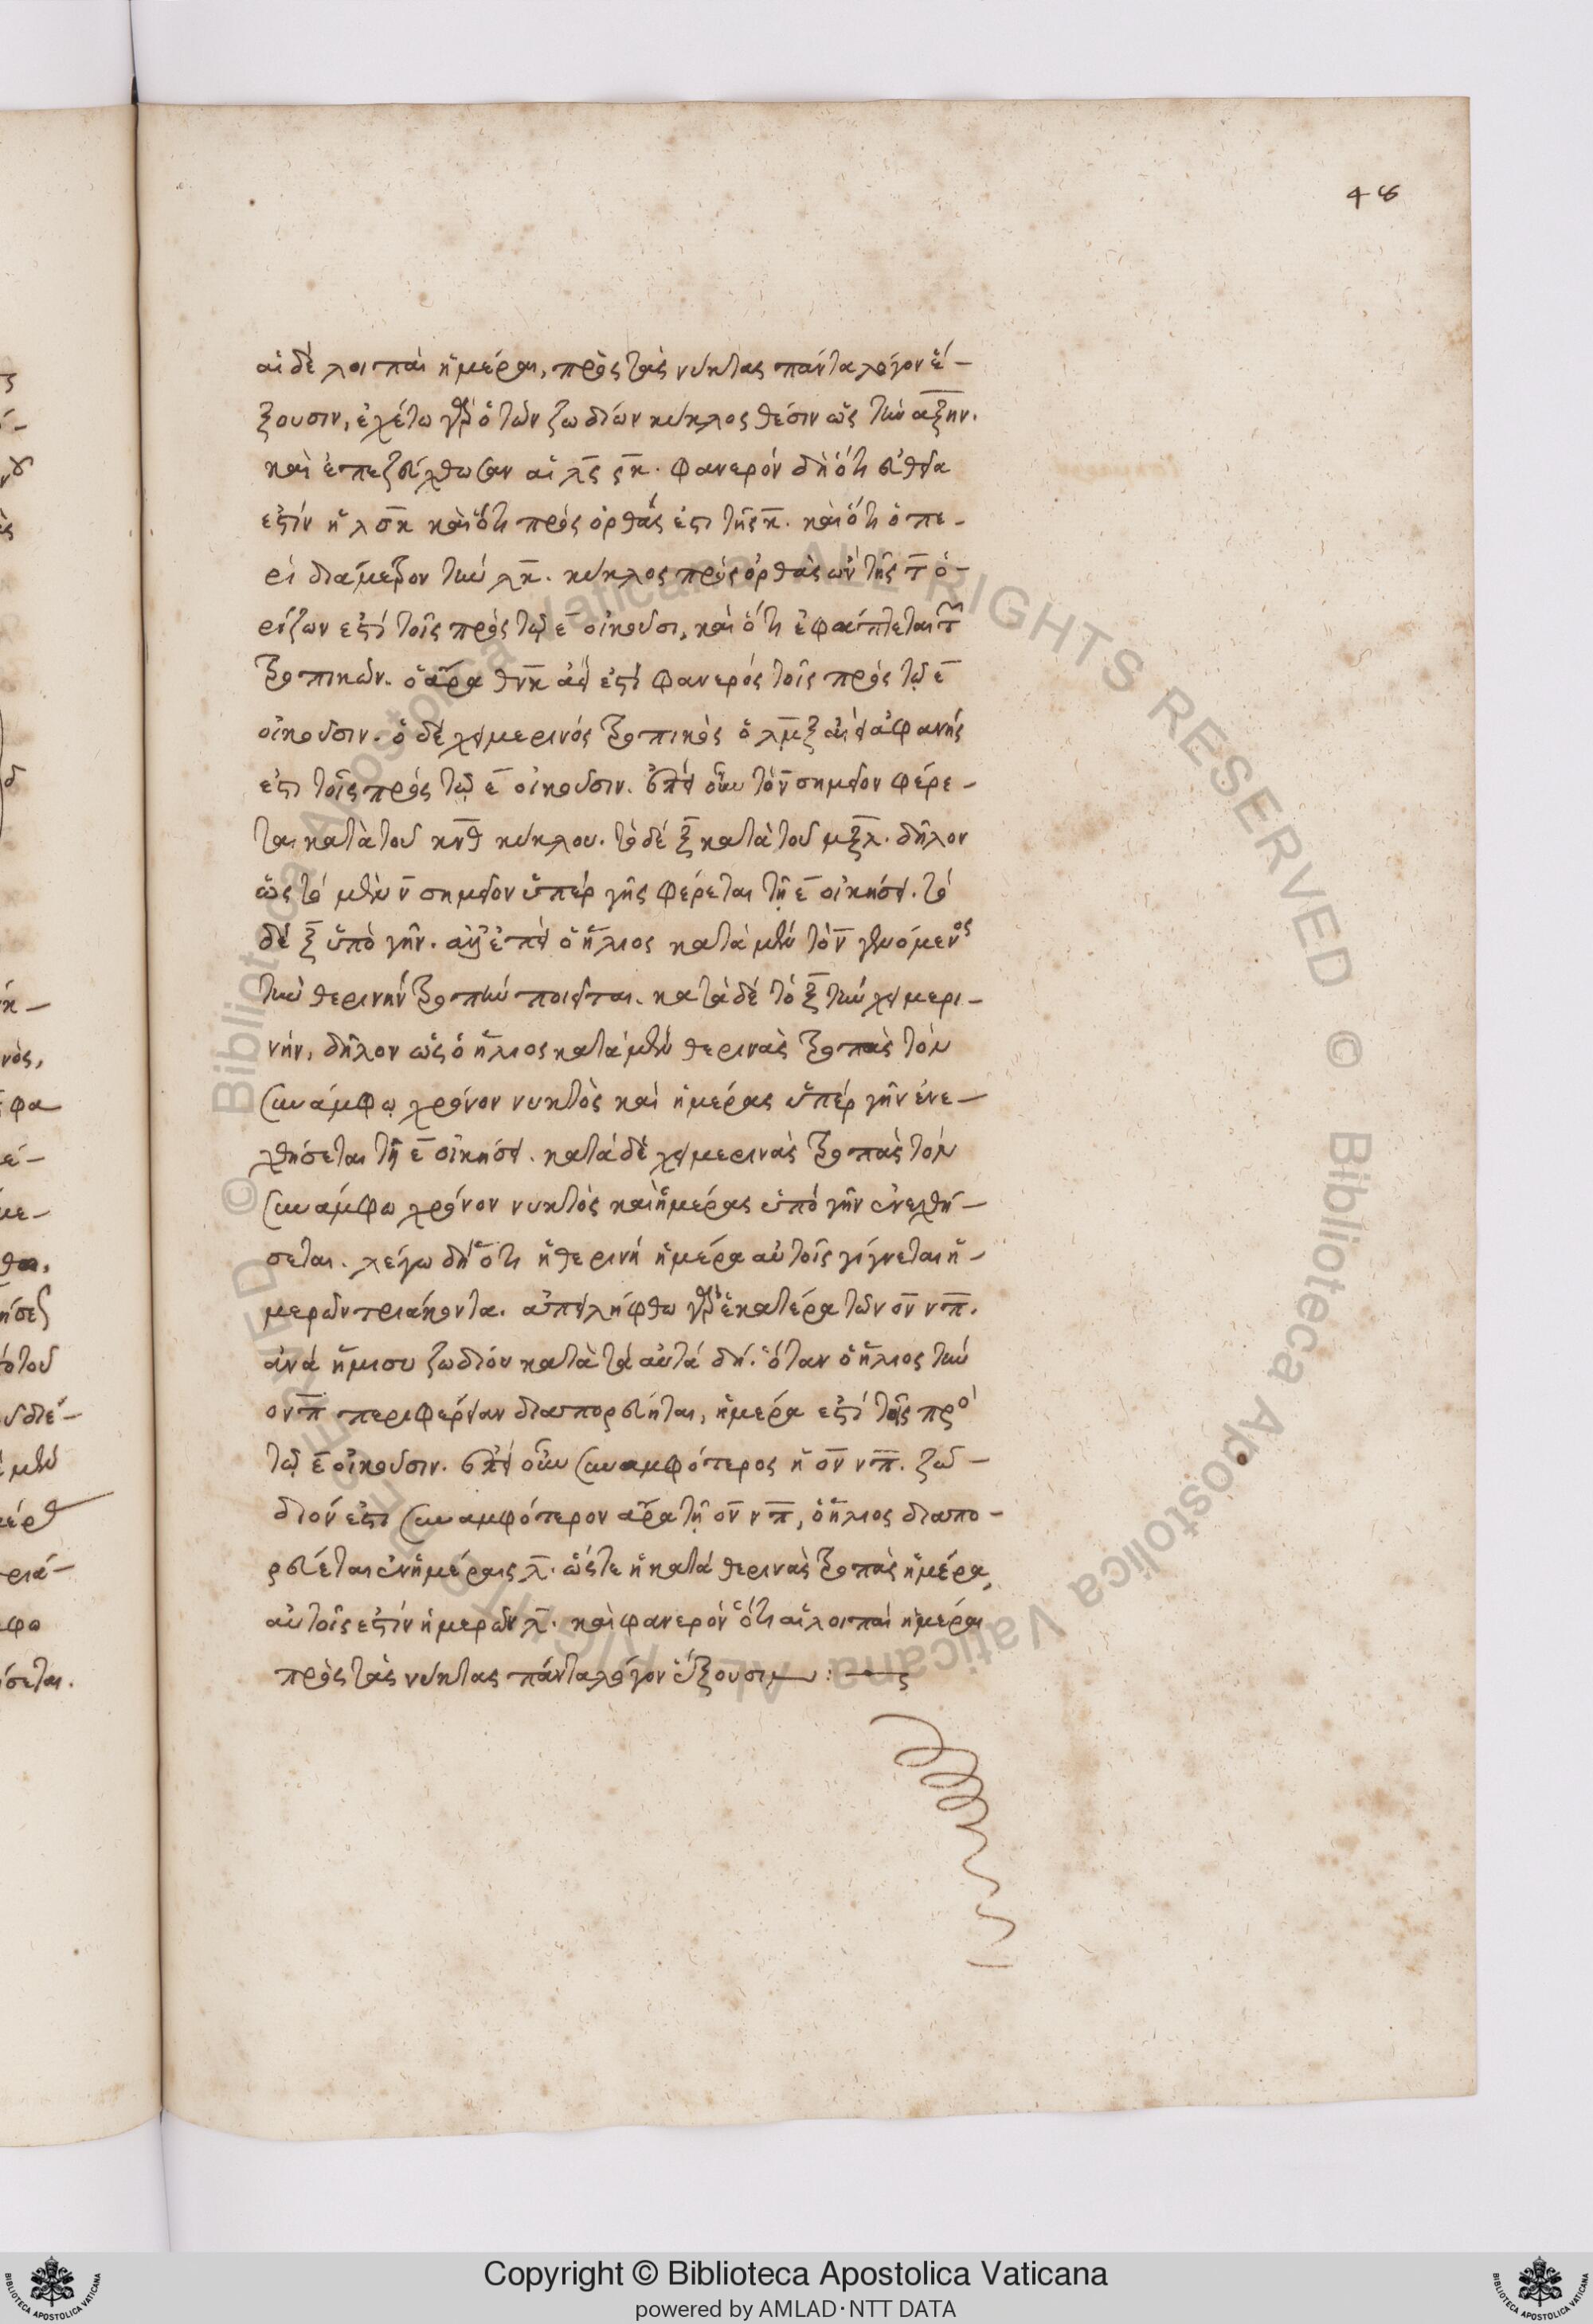 48
αἱ δὲ λοιπαὶ ἡμέραι, πρὸς τὰς νύκτας πάντα λόγον ἕ-
ξουσιν, ἐχέτω γὰρ ὁ τῶν ζωδίων κύκλος θέσιν ὡς τὴν αξην.
καὶ ἐπεζεύχθωσαν αἱ λς ςκ. φανερὸν δὴ ὅτι εὐθεῖα
ἐστὶν ἡ λσκ καὶ ὅτι πρὸς ὀρθάς ἐστι τῆς κ. καὶ ὅτι ὁ πε-
ρὶ διάμετρον τὴν λκ. κύκλος πρὸς ὀρθὰς ὢν τῆς ὁ-
ρίζων ἐστὶ τοῖς πρὸς τῷ ε οἰκοῦσι, καὶ ὅτι ἐφάπτεται τῶν
τροπικῶν. ὁ ἄρα θνκ ἀεί ἐστι φανερὸς τοῖς πρὸς τῷ ε
οἰκοῦσιν. ὁ δὲ χειμερινὸς τροπικὸς ὁ λμξ αἰεὶ ἀφανής
ἐστι τοῖς πρὸς τῷ ε οἰκοῦσιν. ἐπεὶ οὖν τὸ ν σημεῖον φέρε-
ται κατὰ τοῦ κνθ κύκλου. τὸ δὲ ξ κατὰ τοῦ μξλ. δῆλον
ὡς τὸ μὲν ν σημεῖον ὑπὲρ γῆς φέρεται τῇ ε οἰκήσει. τὸ
δὲ ξ ὑπὸ γῆν. ἀλλ' ἐπεὶ ὁ ἥλιος κατὰ μὲν τὸ ν γενόμενος
τὴν θερινὴν τροπὴν ποιεῖται. κατὰ δὲ τὸ ξ τὴν χειμερι-
νήν, δῆλον ὡς ὁ ἥλιος κατὰ μὲν θερινὰς τροπὰς τὸν
συνάμφω χρόνον νυκτὸς καὶ ἡμέρας ὑπὲρ γῆν ἐνε-
χθήσεται τῇ ε οἰκήσει. κατὰ δὲ χειμερινὰς τροπὰς τὸν
συνάμφω χρόνον νυκτὸς καὶ ἡμέρας ὑπὸ γῆν ἐνεχθή-
σεται. λέγω δὴ ὅτι ἡ θερινὴ ἡμέρα αὐτοῖς γίγνεται ἡ-
μερῶν τριάκοντα. ἀπειλήφθω γὰρ ἑκατέρα τῶν ον νπ.
ἀνὰ ἥμισυ ζωδίου κατὰ τὰ αὐτὰ δή. ὅταν ὁ ἥλιος τὴν
ονπ περιφέρειαν διαπορεύηται, ἡμέρα ἐστὶ τοῖς πρὸ
τῷ ε οἰκοῦσιν. ἐπεὶ οὖν συναμφότερος ἡ ον νπ. ζώ-
διόν ἐστι συναμφότερον ἄρα τῇ ον νπ, ὁ ἥλιος διαπο-
ρεύεται ἐν ἡμέραις λ. ὥστε ἡ κατὰ θερινὰς τροπὰς ἡμέρα,
αὐτοῖς ἐστὶν ἡμερῶν λ. καὶ φανερὸν ὅτι αἱ λοιπαὶ ἡμέραι
πρὸς τὰς νύκτας πάντα λόγον ἕξουσιν :
Copyright © Biblioteca Apostolica Vaticana
powered by AMLAD·NTT DATA